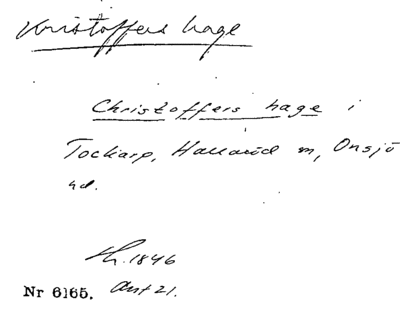 Kristoffers hage
Christoffers hage i
Tockarp, Hallaröd sn, Onsjö
hd.
Lh. 1846
Nr 6165. Ant 21.